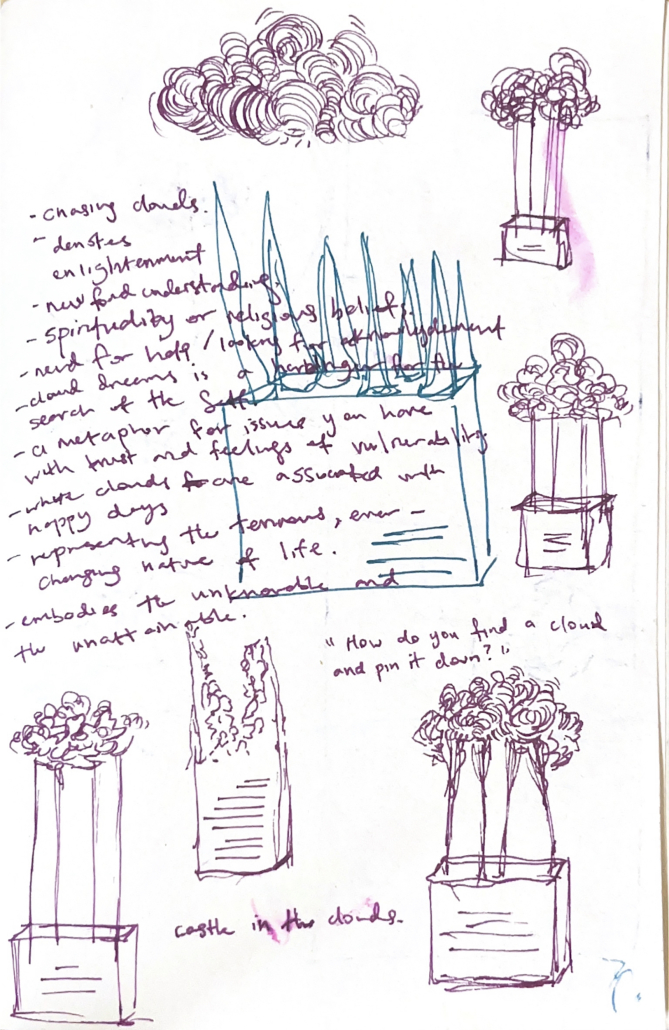 - chasing clouds.
- denotes
enlightenment
- new fond understanding.
- spiritudity or religious beliefs.
- need for help / looking for acknowledgement
- cloud dreams is a harbinger for the
search of the Self.
- a metaphor for issues you have
with trust and feelings of vulnerability.
- white clouds are associated with
happy days
- representing the tenuous, ever-
changing nature of life.
- embodies the unknowable and
the unattainable.
"How do you find a cloud
and pin it down?"
castle in the clouds.